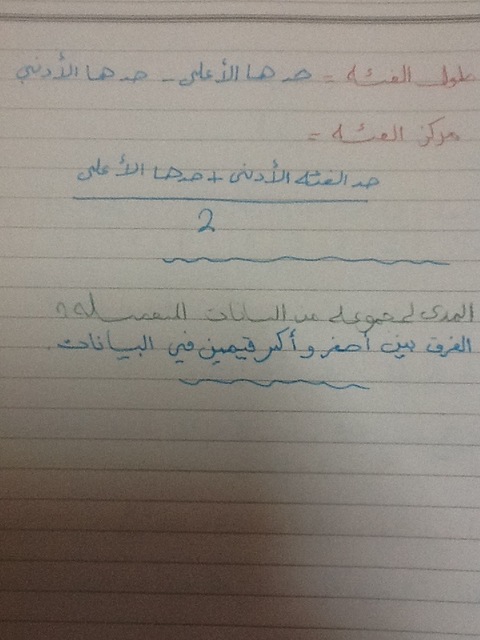 طول الفئة = حدها الأعلى - حدها الأدنى
مركز الفئة =
حد الفئة الأدنى + حدها الأعلى
2
المدى لمجموعة من البيانات المنفصلة:
الفرق بين أصغر وأكبر قيمتين في البيانات.